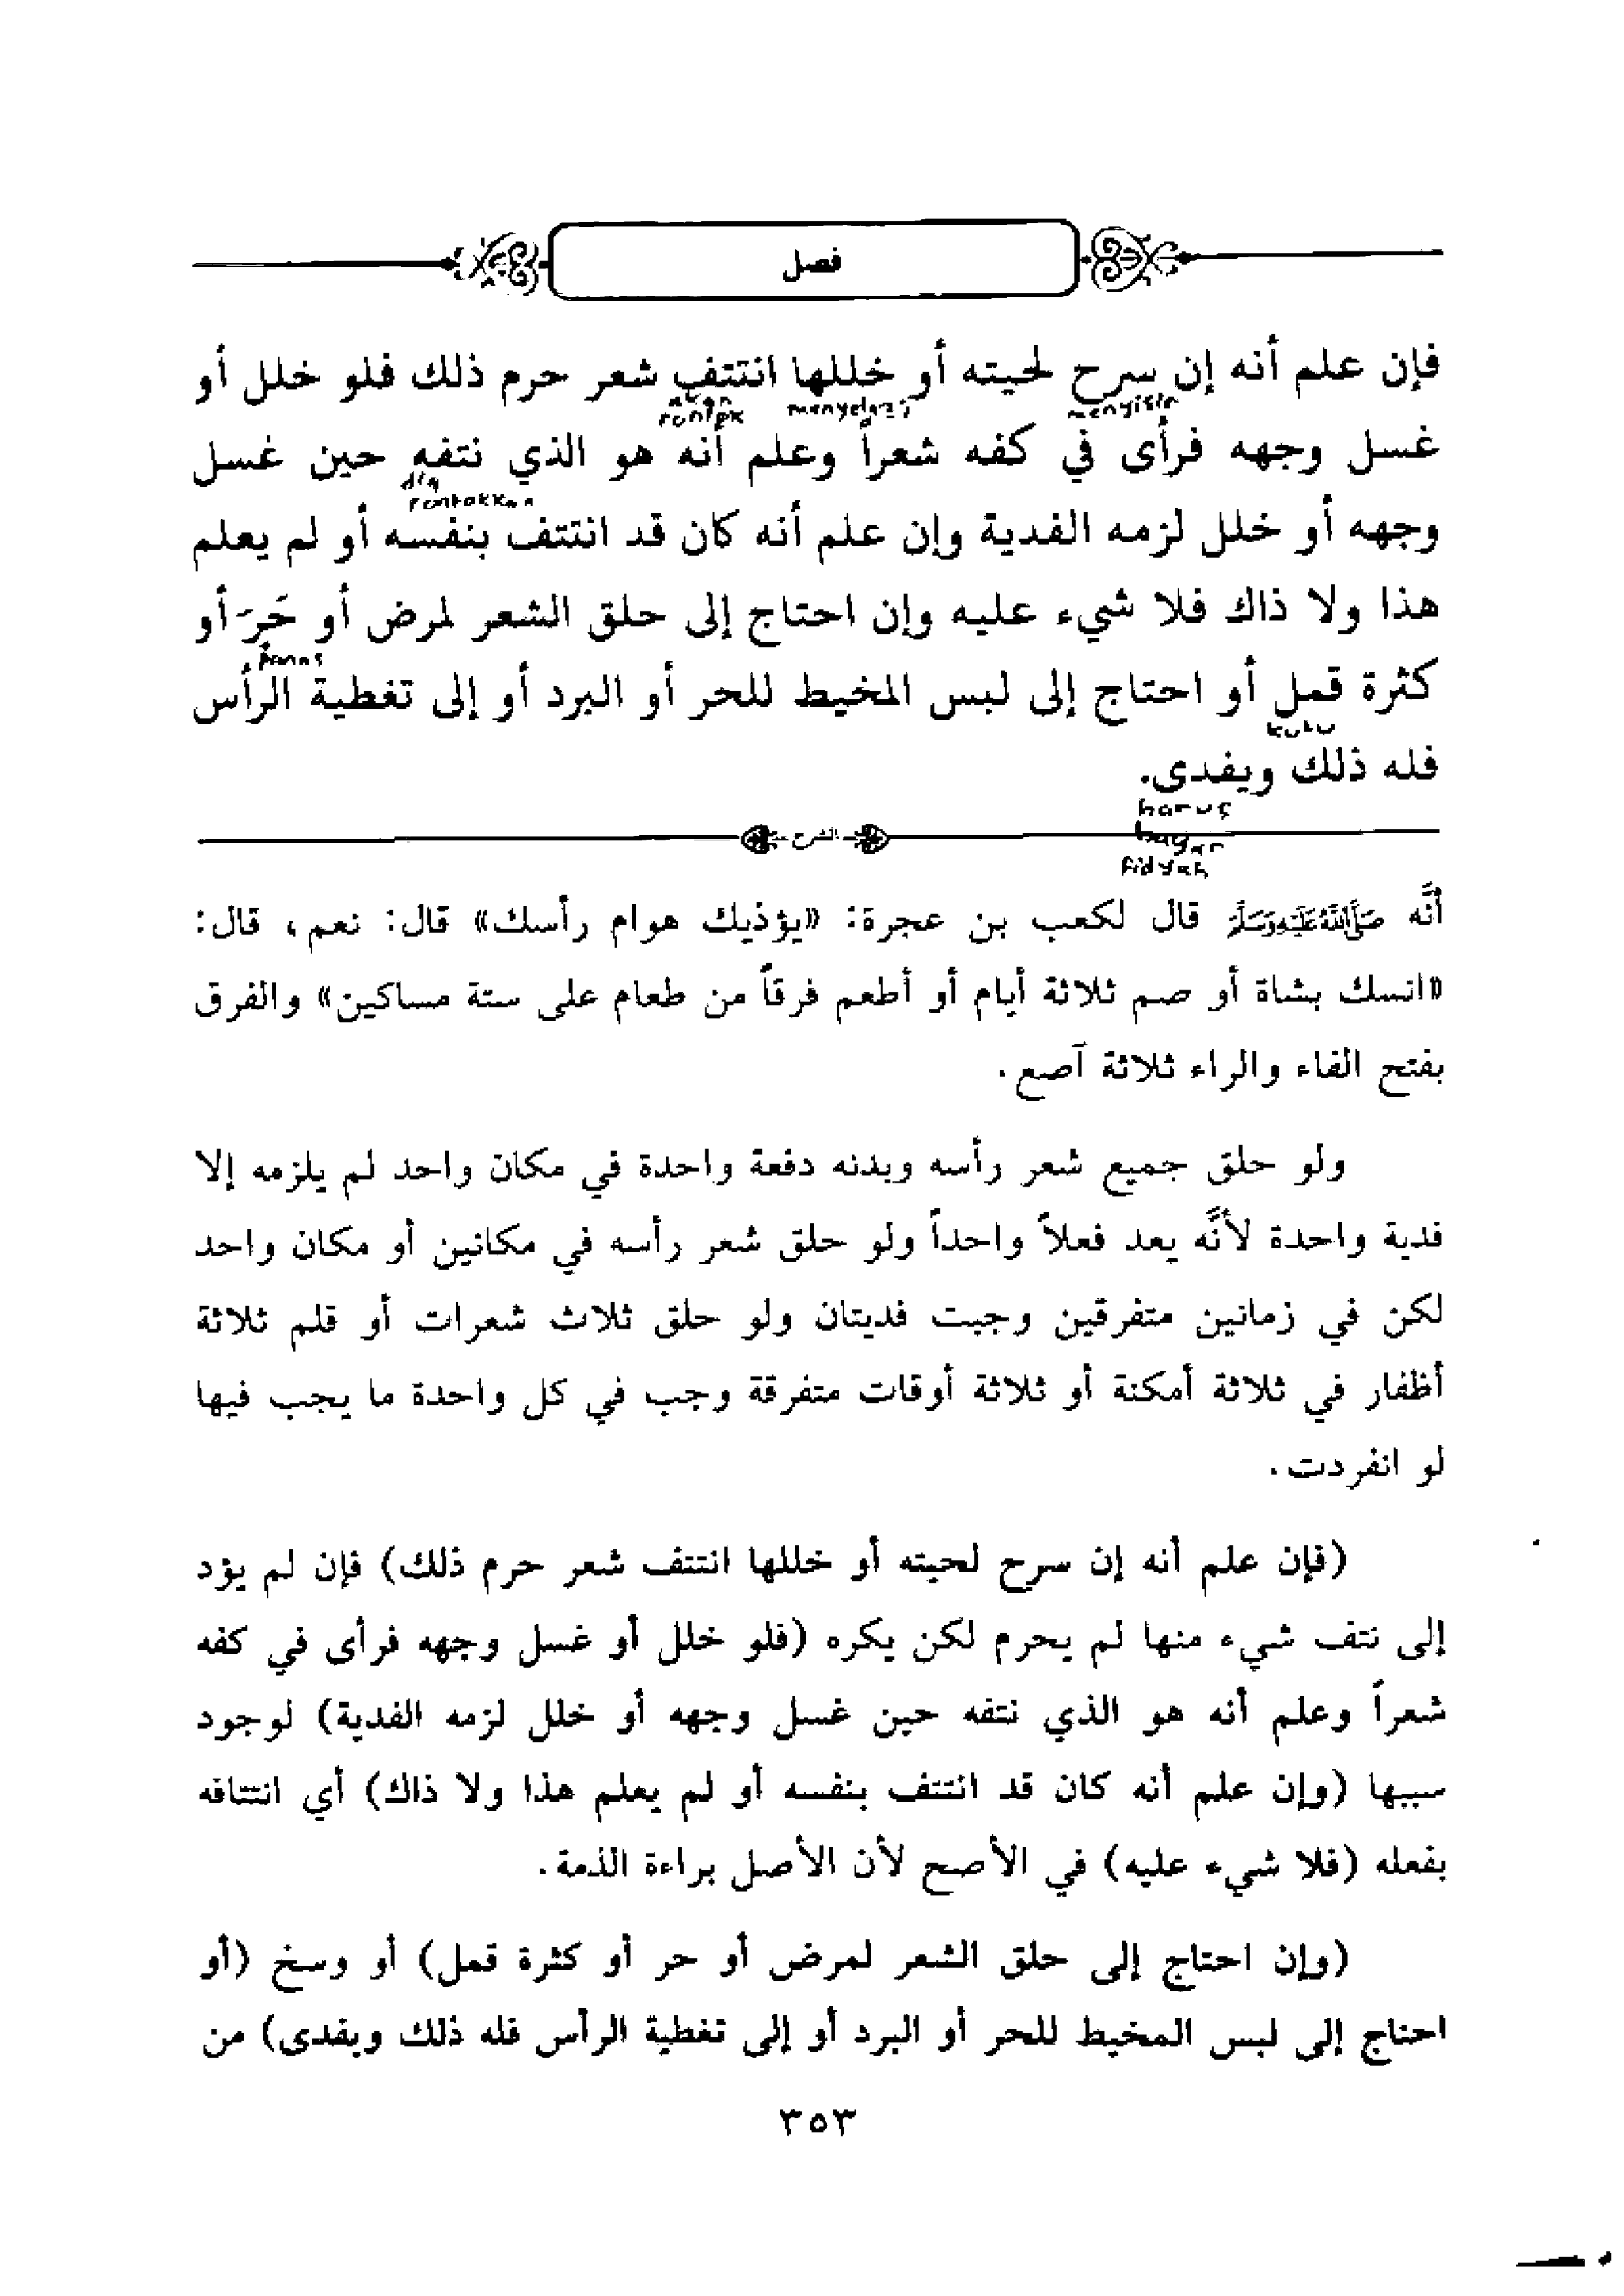 فصل
فإن علم أنه إن سرح لحيته أو خللها انتتف شعر حرم ذلك فلو خلل أو
akan
rontok menyelazi menyisir
غسل وجهه فرأى في كفه شعراً وعلم أنه هو الذي نتفه حين غسل
dia
rontokkan
وجهه أو خلل لزمه الفدية وإن علم أنه كان قد انتتف بنفسه أو لم يعلم
هذا ولا ذاك فلا شيء عليه وإن احتاج إلى حلق الشعر لمرض أو حَرّ أو
panas
كثرة قمل أو احتاج إلى لبس المخيط للحر أو البرد أو إلى تغطية الرأس
kutu
فله ذلك ويفدى.
harus
bayar
fidyah
الشرح
أنَّه ﷺ قال لكعب بن عجرة: «يؤذيك هوام رأسك» قال: نعم، قال:
«انسك بشاة أو صم ثلاثة أيام أو أطعم فرقاً من طعام على ستة مساكين» والفرق
بفتح الفاء والراء ثلاثة آصع.
ولو حلق جميع شعر رأسه وبدنه دفعة واحدة في مكان واحد لم يلزمه إلا
فدية واحدة لأنَّه يعد فعلاً واحداً ولو حلق شعر رأسه في مكانين أو مكان واحد
لكن في زمانين متفرقين وجبت فديتان ولو حلق ثلاث شعرات أو قلم ثلاثة
أظفار في ثلاثة أمكنة أو ثلاثة أوقات متفرقة وجب في كل واحدة ما يجب فيها
لو انفردت.
(فإن علم أنه إن سرح لحيته أو خللها انتتف شعر حرم ذلك) فإن لم يؤد
إلى نتف شيء منها لم يحرم لكن يكره (فلو خلل أو غسل وجهه فرأى في كفه
شعراً وعلم أنه هو الذي نتفه حين غسل وجهه أو خلل لزمه الفدية) لوجود
سببها (وإن علم أنه كان قد انتتف بنفسه أو لم يعلم هذا ولا ذاك) أي انتتافه
بفعله (فلا شيء عليه) في الأصح لأن الأصل براءة الذمة.
(وإن احتاج إلى حلق الشعر لمرض أو حر أو كثرة قمل) أو وسخ (أو
احتاج إلى لبس المخيط للحر أو البرد أو إلى تغطية الرأس فله ذلك ويفدى) من
٣٥٣